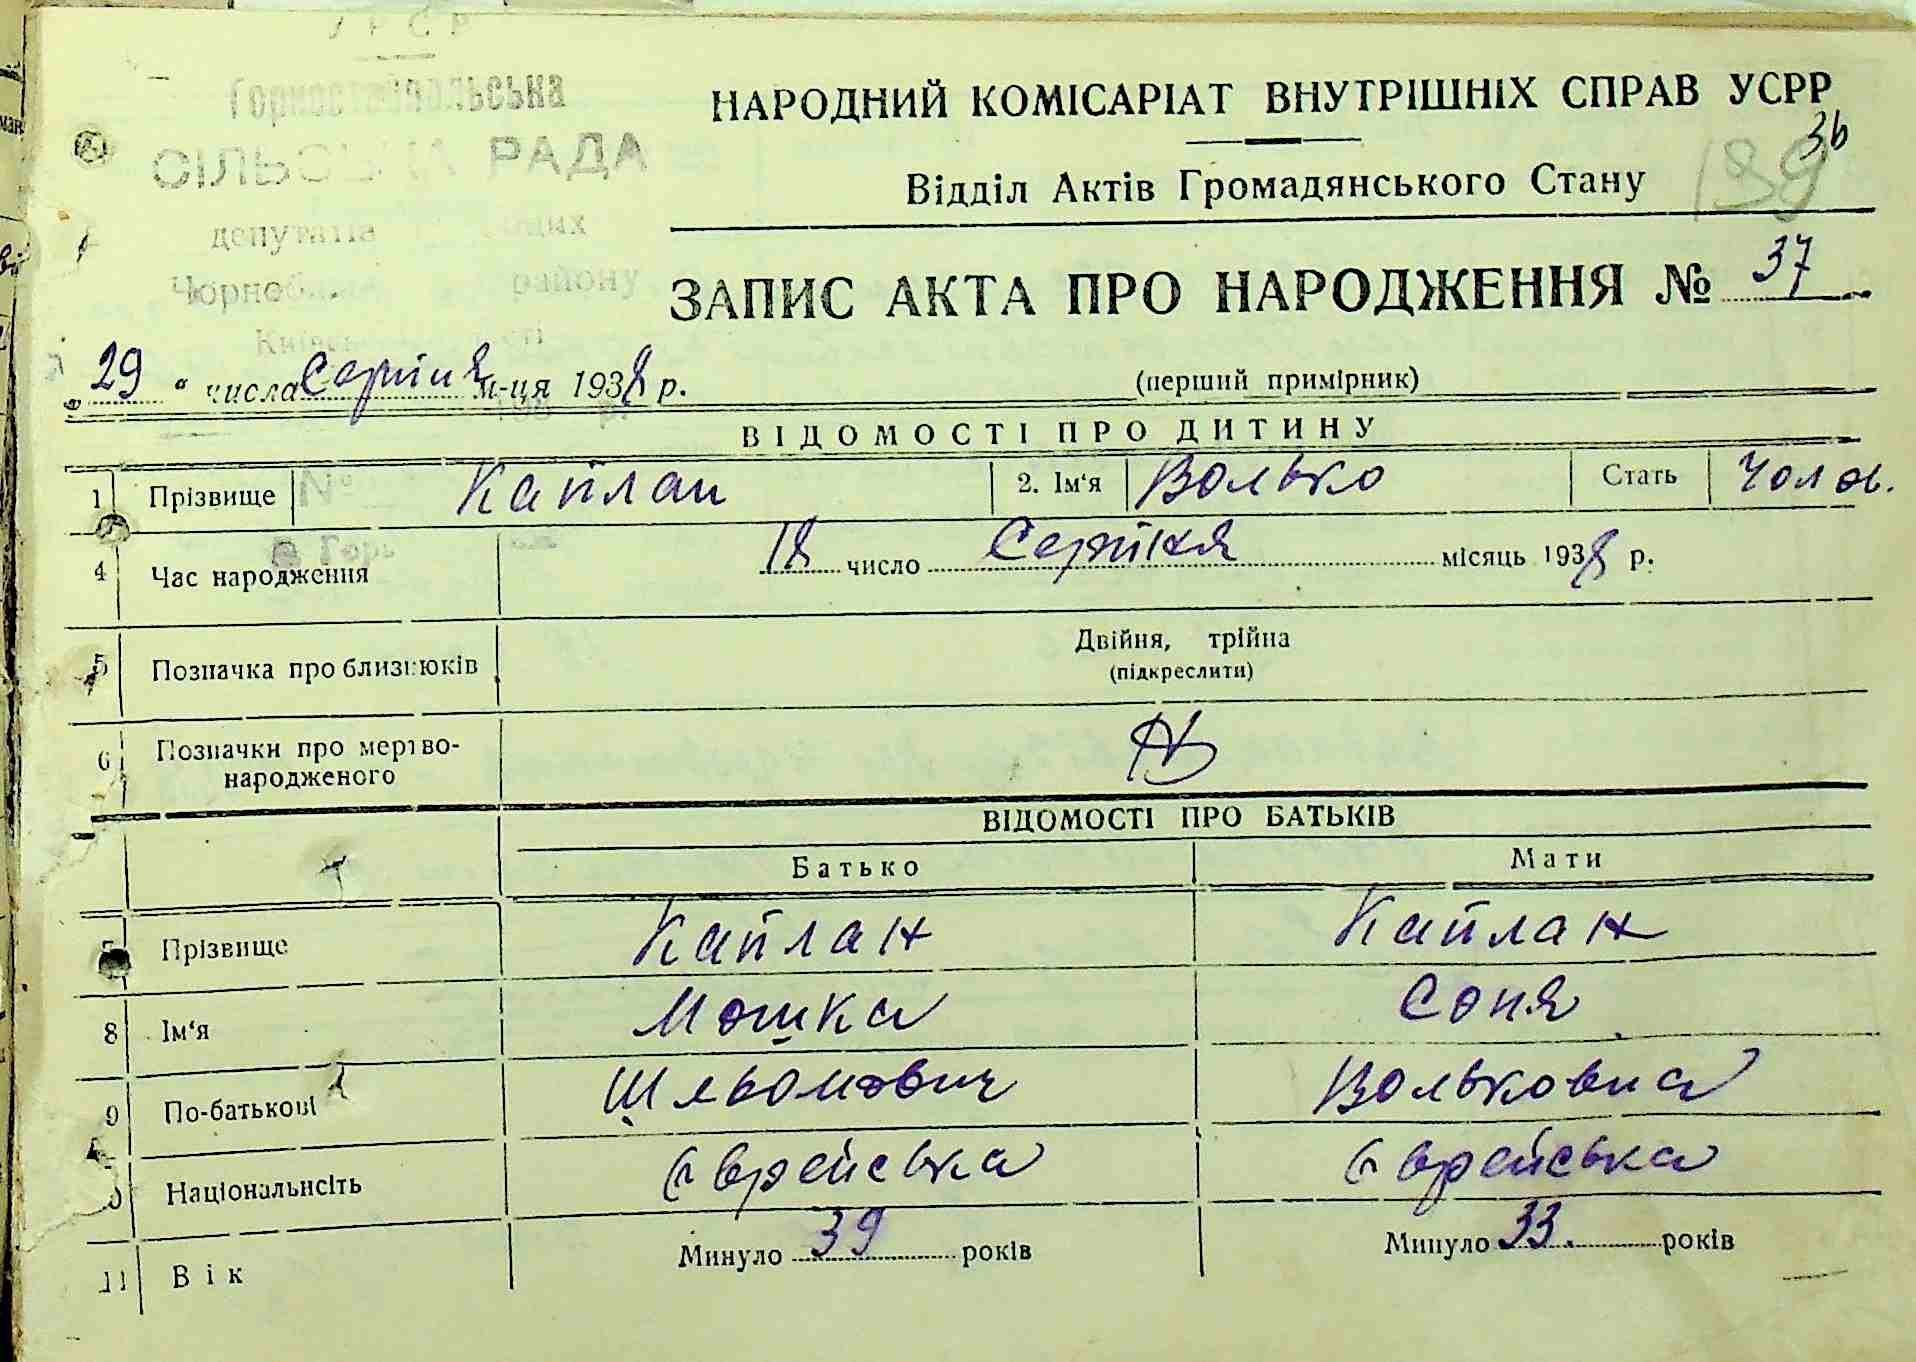 УРСР
Горностайпільська
СІЛЬСЬКА РАДА
депутатів
Чорнобильського району
НАРОДНИЙ КОМІСАРІАТ ВНУТРІШНІХ СПРАВ УСРР
36
139
Відділ Актів Громадянського Стану
ЗАПИС АКТА ПРО НАРОДЖЕННЯ № 37
„29“ числа Серпня м-ця 1938 р.
(перший примірник)
ВІДОМОСТІ ПРО ДИТИНУ
1 Прізвище Каплан 2. Ім‘я Волько Стать Чолов.
4 Час народження 18 число Серпня місяць 1938 р.
5 Позначка про близнюків Двійня, трійна
(підкреслити)
6 Позначки про мертво-
народженого
ВІДОМОСТІ ПРО БАТЬКІВ
Батько Мати
Прізвище Каплан Каплан
8 Ім‘я Мошка Соня
9 По-батькові Шльомович Вольковна
Національнсіть Єврейська Єврейська
11 Вік Минуло 39 років Минуло 33. років